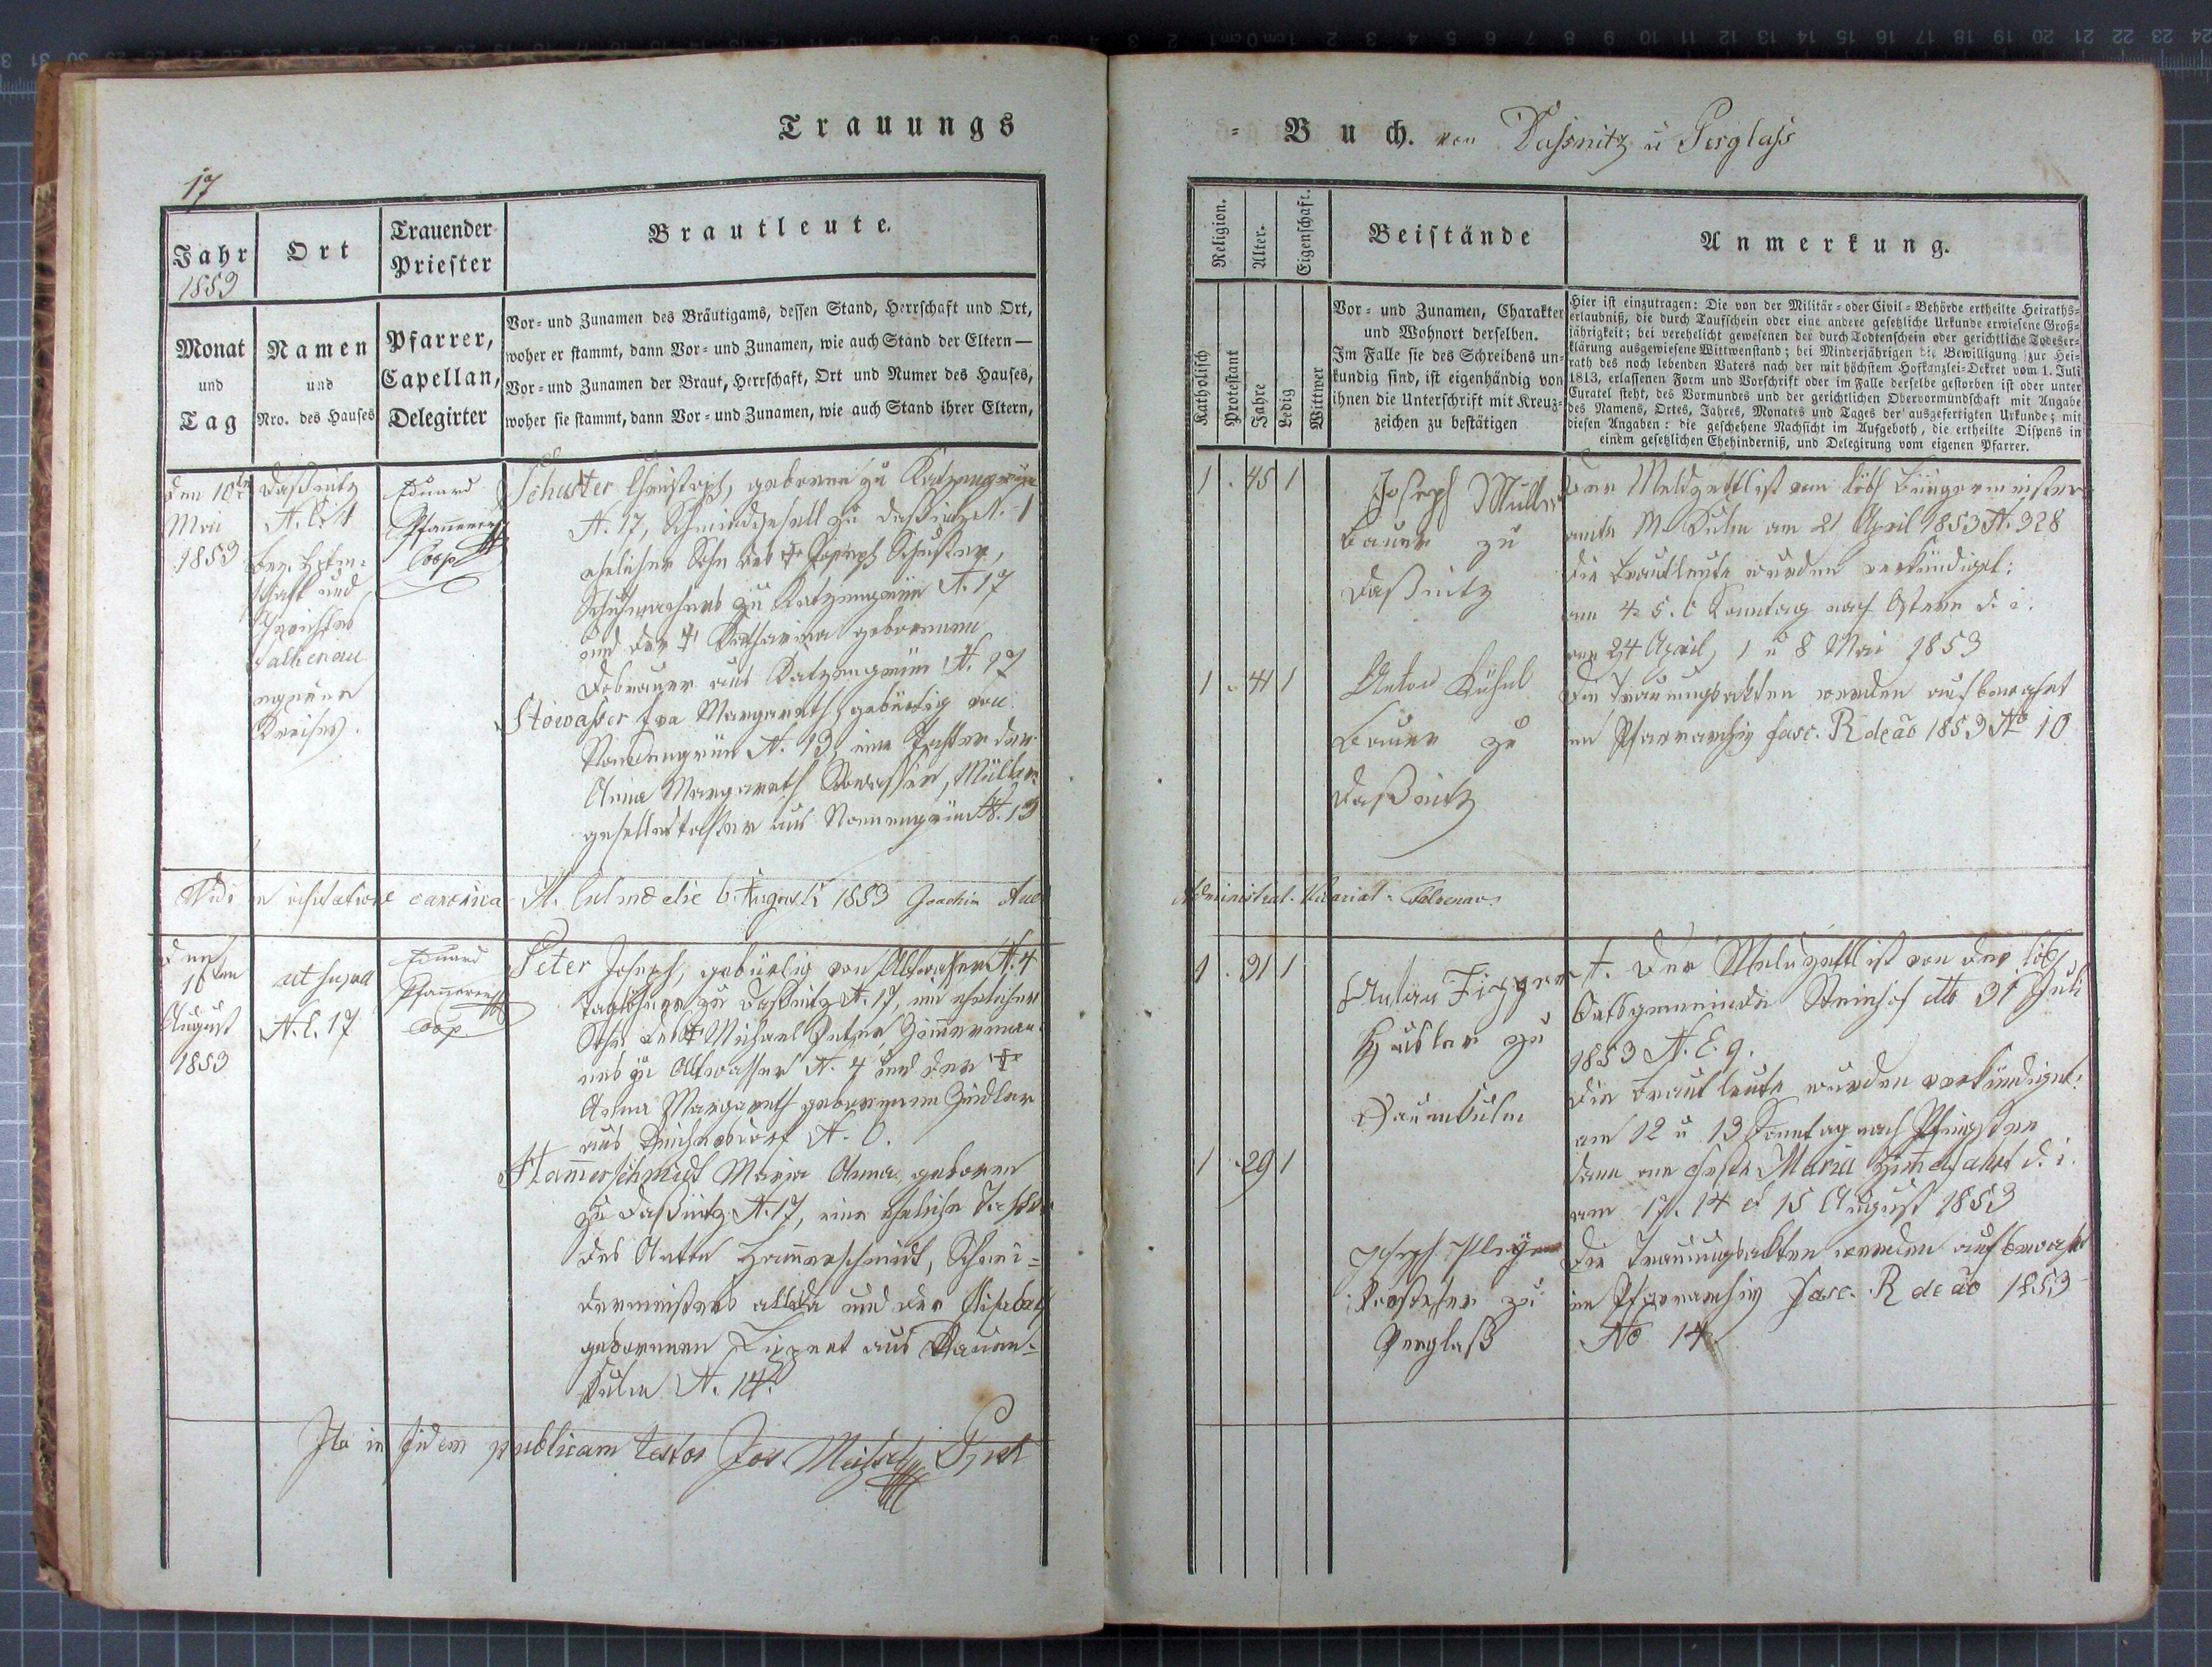 Trauungs
17
Jahr
1853
Ort
Trauender
Priester
Brautleute.
Monat
und
Tag
Namen
und
Nro. des Hauses
Pfarrer,
Capellan,
Delegirter
Vor- und Zunamen des Bräutigams, dessen Stand, Herrschaft und Ort,
woher er stammt, dann Vor- und Zunamen, wie auch Stand der Eltern —
Vor- und Zunamen der Braut, Herrschaft, Ort und Numer des Hauses,
woher sie stammt, dann Vor- und Zunamen, wie auch Stand ihrer Eltern,
den 10t
Mai
1853
Daßnitz
N. C. 1
und
Falkenau
Kreises.
Eduard
Coop
Schuster Christoph, geboren zu Katzengrün
N. 17, zu Daßnitz N. 1
ehelicher Sohn des † Joseph Schuster,
Schuhmachers zu Katzengrün N. 17
und der † Katharina gebornen
aus Katzengrün N. 17
Stowasser Eva Margareth gebürtig von
N. 13, eine Tochter der
Anna Margareth Stowasser, Müller-
gesellestochter aus N. 13
Vidi in visitatione canonica N. Culmae die 6. Augusti 1853 Joachim
den
16ten
August
1853
N. C. 17
Eduard
Coop
Peter Joseph, gebürtig von Altwasser N. 4
Taglöhner zu Daßnitz N. 17, ein ehelicher
Sohn des † Michael Peter, Zimmerman-
nes zu Altwasser N. 4 und der †
Anna Margareth gebornenen Zeidler
aus N. 6.
Hamerschmidt Maria Anna, geboren
zu Daßnitz N. 17, eine eheliche Tochter
des Anton Hamerschmidt, Schnei-
dermeisters allda und der Elisabeth
gebornenen Lippert aus
Kulm N. 14.
Ita in fidem publicam testor Jos
- Buch. von Dassnitz u Perglass
Religion.
Alter.
Eigenschaft.
Beistände
Anmerkung.
Katholisch
Protestant
Jahre
Ledig
Wittwer
Vor- und Zunamen, Charakter
und Wohnort derselben.
Im Falle sie des Schreibens un-
kundig sind, ist eigenhändig von
ihnen die Unterschrift mit Kreuz-
zeichen zu bestätigen
Hier ist einzutragen: Die von der Militär- oder Civil-Behörde ertheilte Heiraths-
erlaubniß, die durch Taufschein oder eine andere gesetzliche Urkunde erwiesene Groß-
jährigkeit; bei verehelicht gewesenen der durch Todtenschein oder gerichtliche Todeser-
klärung ausgewiesene Wittwenstand; bei Minderjährigen die Bewilligung zur Hei-
rath des noch lebenden Vaters nach der mit höchstem Hofkanzlei-Dekret vom 1. Juli
1813, erlassenen Form und Vorschrift oder im Falle derselbe gestorben ist oder unter
Curatel steht, des Vormundes und der gerichtlichen Obervormundschaft mit Angabe
des Namens, Ortes, Jahres, Monates und Tages der ausgefertigten Urkunde; mit
diesen Angaben: die geschehene Nachsicht im Aufgeboth, die ertheilte Dispens in
einem gesetzlichen Ehehinderniß, und Delegirung vom eigenen Pfarrer.
1 . 45 1
Joseph Müller
Bauer zu
Daßnitz
Der Meldzettl ist vom löbl Bürgermeister-
amte M. Kulm am 21 April 1853 N. 328
Die Brautleute wurden verkündiget:
am 4. 5. 6 Sonntag nach Ostern d. i.
am 24 April, 1 u 8 Mai 1853
1 . 41 1
Anton Kühnl
Bauer zu
Daßnitz
Die Trauungsakten werden aufbewahrt
im Pfarrarchiv Fasc. R de ao 1853 No 10
Administrat. Vicariat. Falkenav.
1 . 31 1
Anton
Häusler zu
Der Meldzettl ist von der löbl
Ortsgemeinde Steinhof dto 31 Juli
1853 N. E. 9.
Die Brautleute wurden verkündiget:
am 12 u 13 Sonntag nach Pfingsten
dann am Feste Maria Himelfahrt d. i.
am 14 et 15 August 1853
1 . 29 1
Joseph
zu
Perglaß
Die Trauungsakten werden aufbewahrt
im Pfarrarchiv Fasc. R de ao 1853
No 14